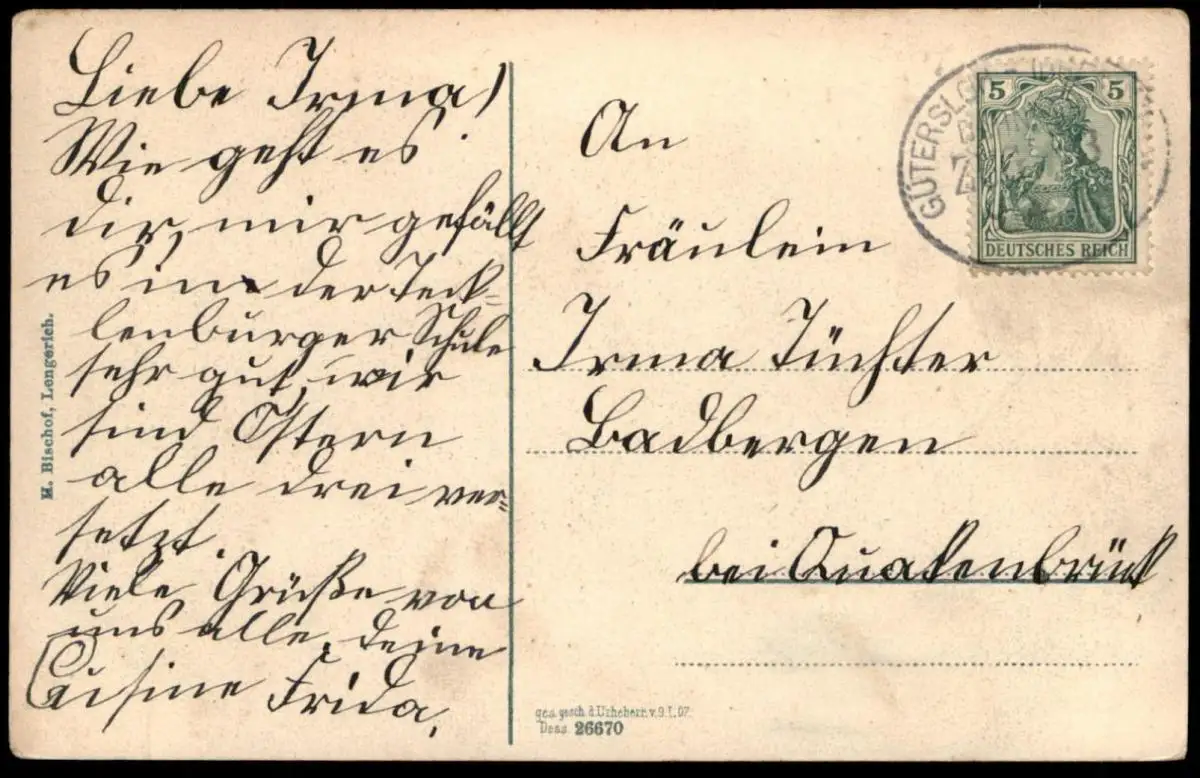 Liebe Irma!
Wie geht es
dir, mir gefällt
es in der Teck-
lenburger Schule
sehr gut, wir
sind Ostern
alle drei ver-
setzt.
Viele Grüße von
uns alle. deine
Cusine Frida,
H. Bischof, Lengerich.
An
Fräulein
Irma Tüchter
Badbergen
bei Quakenbrück
GÜTERSLOH
5 5
DEUTSCHES REICH
ges. gesch. d. Urhebern. v. 9.1.07.
Dess. 26670